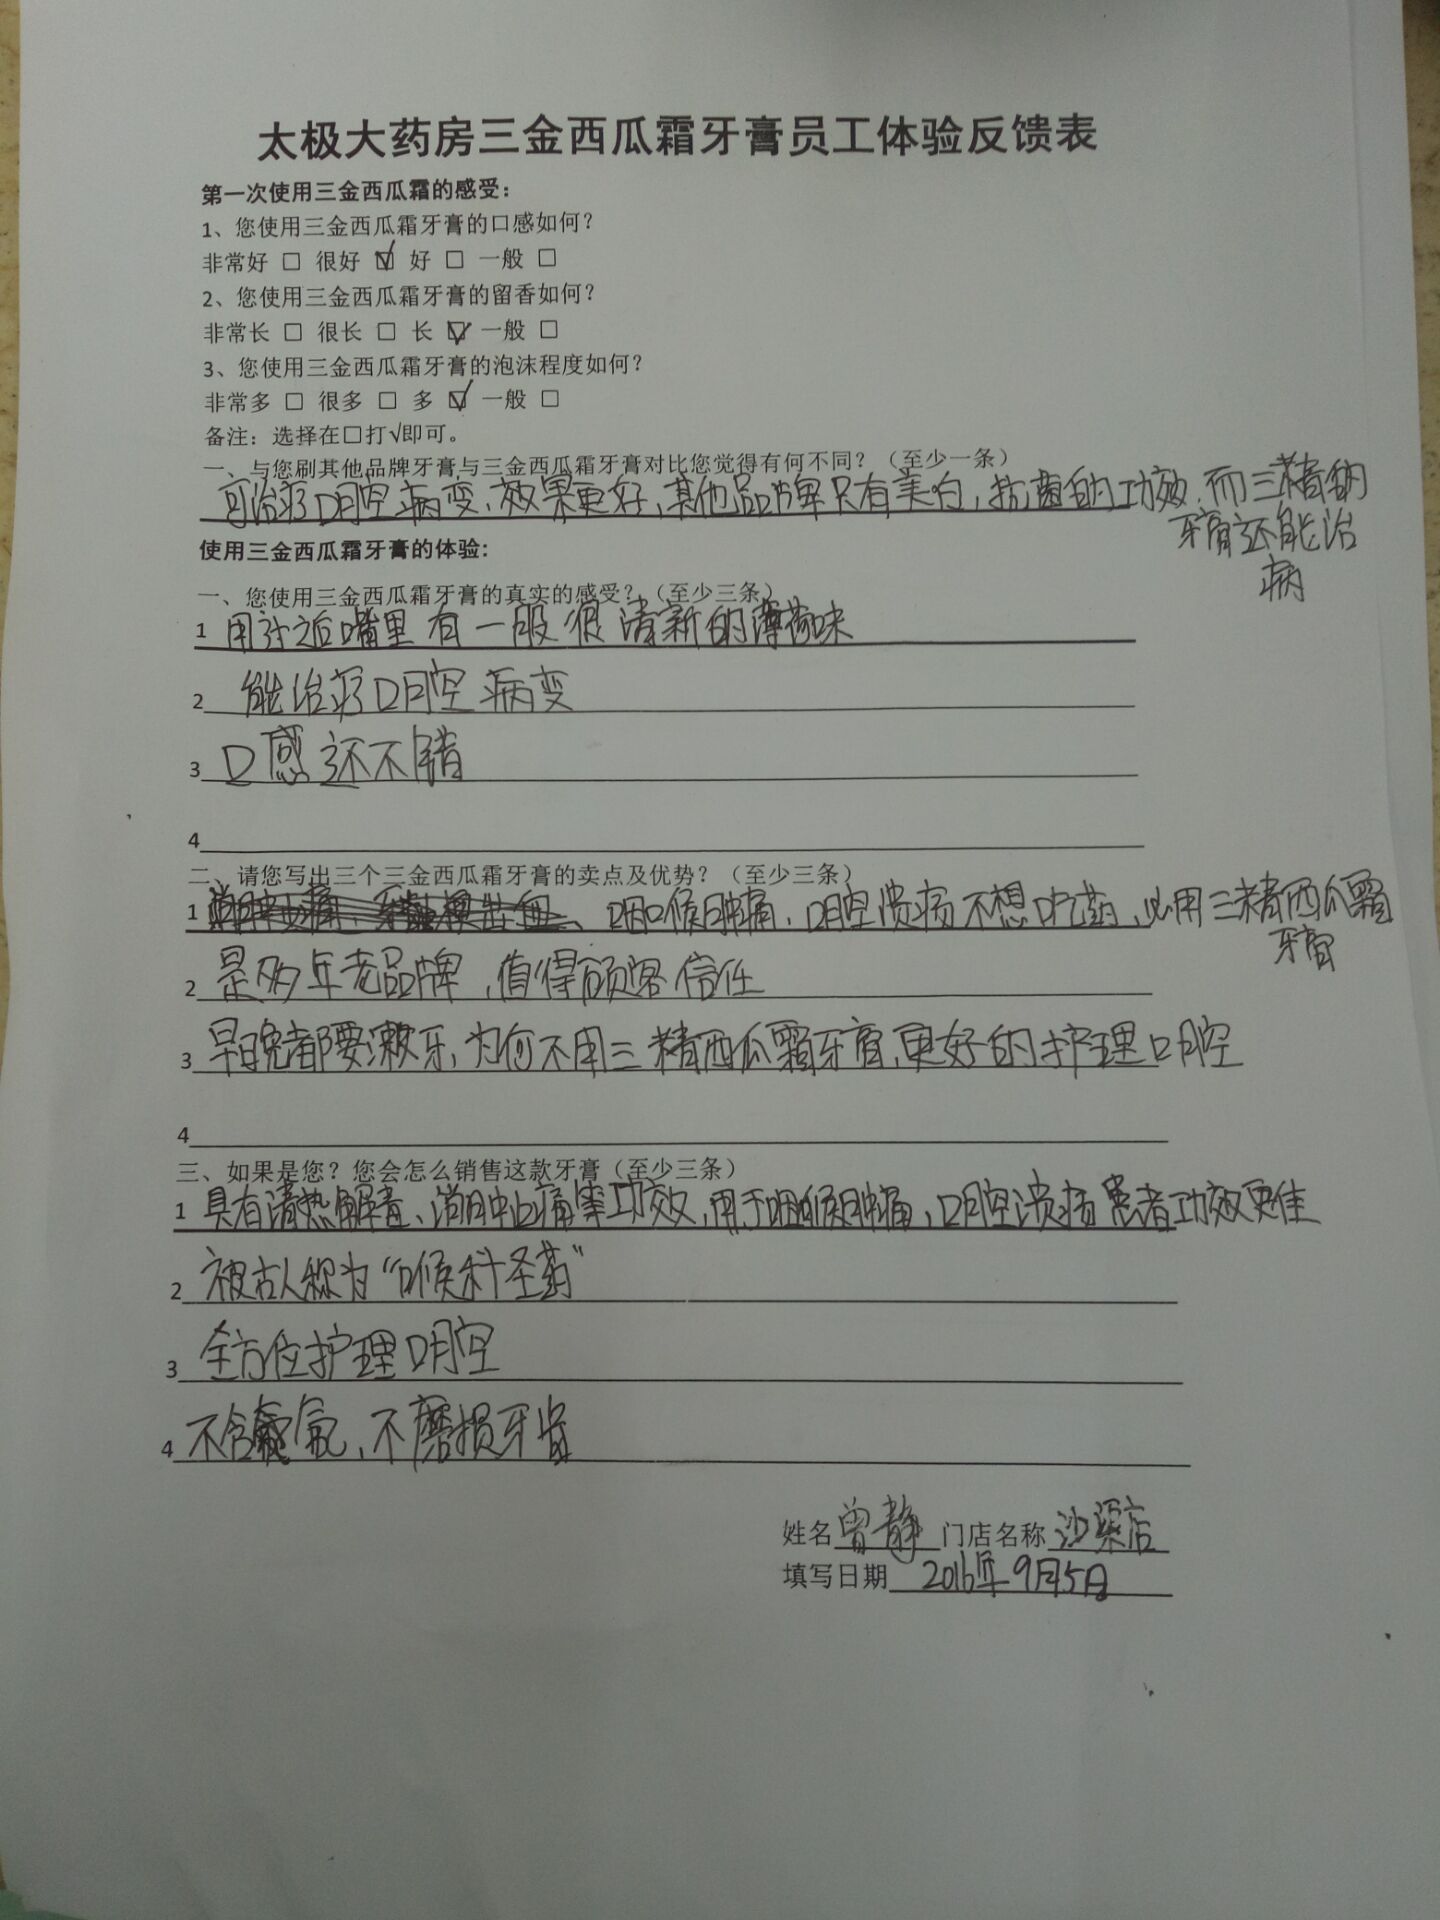 太极大药房三金西瓜霜牙膏员工体验反馈表
第一次使用三金西瓜霜的感受：
1、您使用三金西瓜霜牙膏的口感如何？
非常好 □ 很好 ☑ 好 □ 一般 □
2、您使用三金西瓜霜牙膏的留香如何？
非常长 □ 很长 □ 长 ☑ 一般 □
3、您使用三金西瓜霜牙膏的泡沫程度如何？
非常多 □ 很多 □ 多 ☑ 一般 □
备注：选择在□打√即可。
一、与您刷其他品牌牙膏与三金西瓜霜牙膏对比您觉得有何不同？（至少一条）
可治疗口腔病变、效果更好，其他品牌只有美白，抗菌的功效，而三精的
牙膏还能治
病
使用三金西瓜霜牙膏的体验:
一、您使用三金西瓜霜牙膏的真实的感受？（至少三条）
1 用过之后嘴里有一股很清新的薄荷味
2 能治疗口腔病变
3 口感还不错
4
二、请您写出三个三金西瓜霜牙膏的卖点及优势？（至少三条）
1 咽喉肿痛，口腔溃疡不想吃药，必用三精西瓜霜
牙膏
2 是多年老品牌，值得顾客信任
3 早晚都要漱牙，为何不用三精西瓜霜牙膏，更好的护理口腔
4
三、如果是您？您会怎么销售这款牙膏（至少三条）
1 具有清热解毒、消肿止痛等功效，用于咽喉肿痛，口腔溃疡患者功效更佳
2 被古人称为“喉科圣药”
3 全方位护理口腔
4 不含氟，不磨损牙齿
姓名 曾静 门店名称 沙渠店
填写日期 2016年9月5日